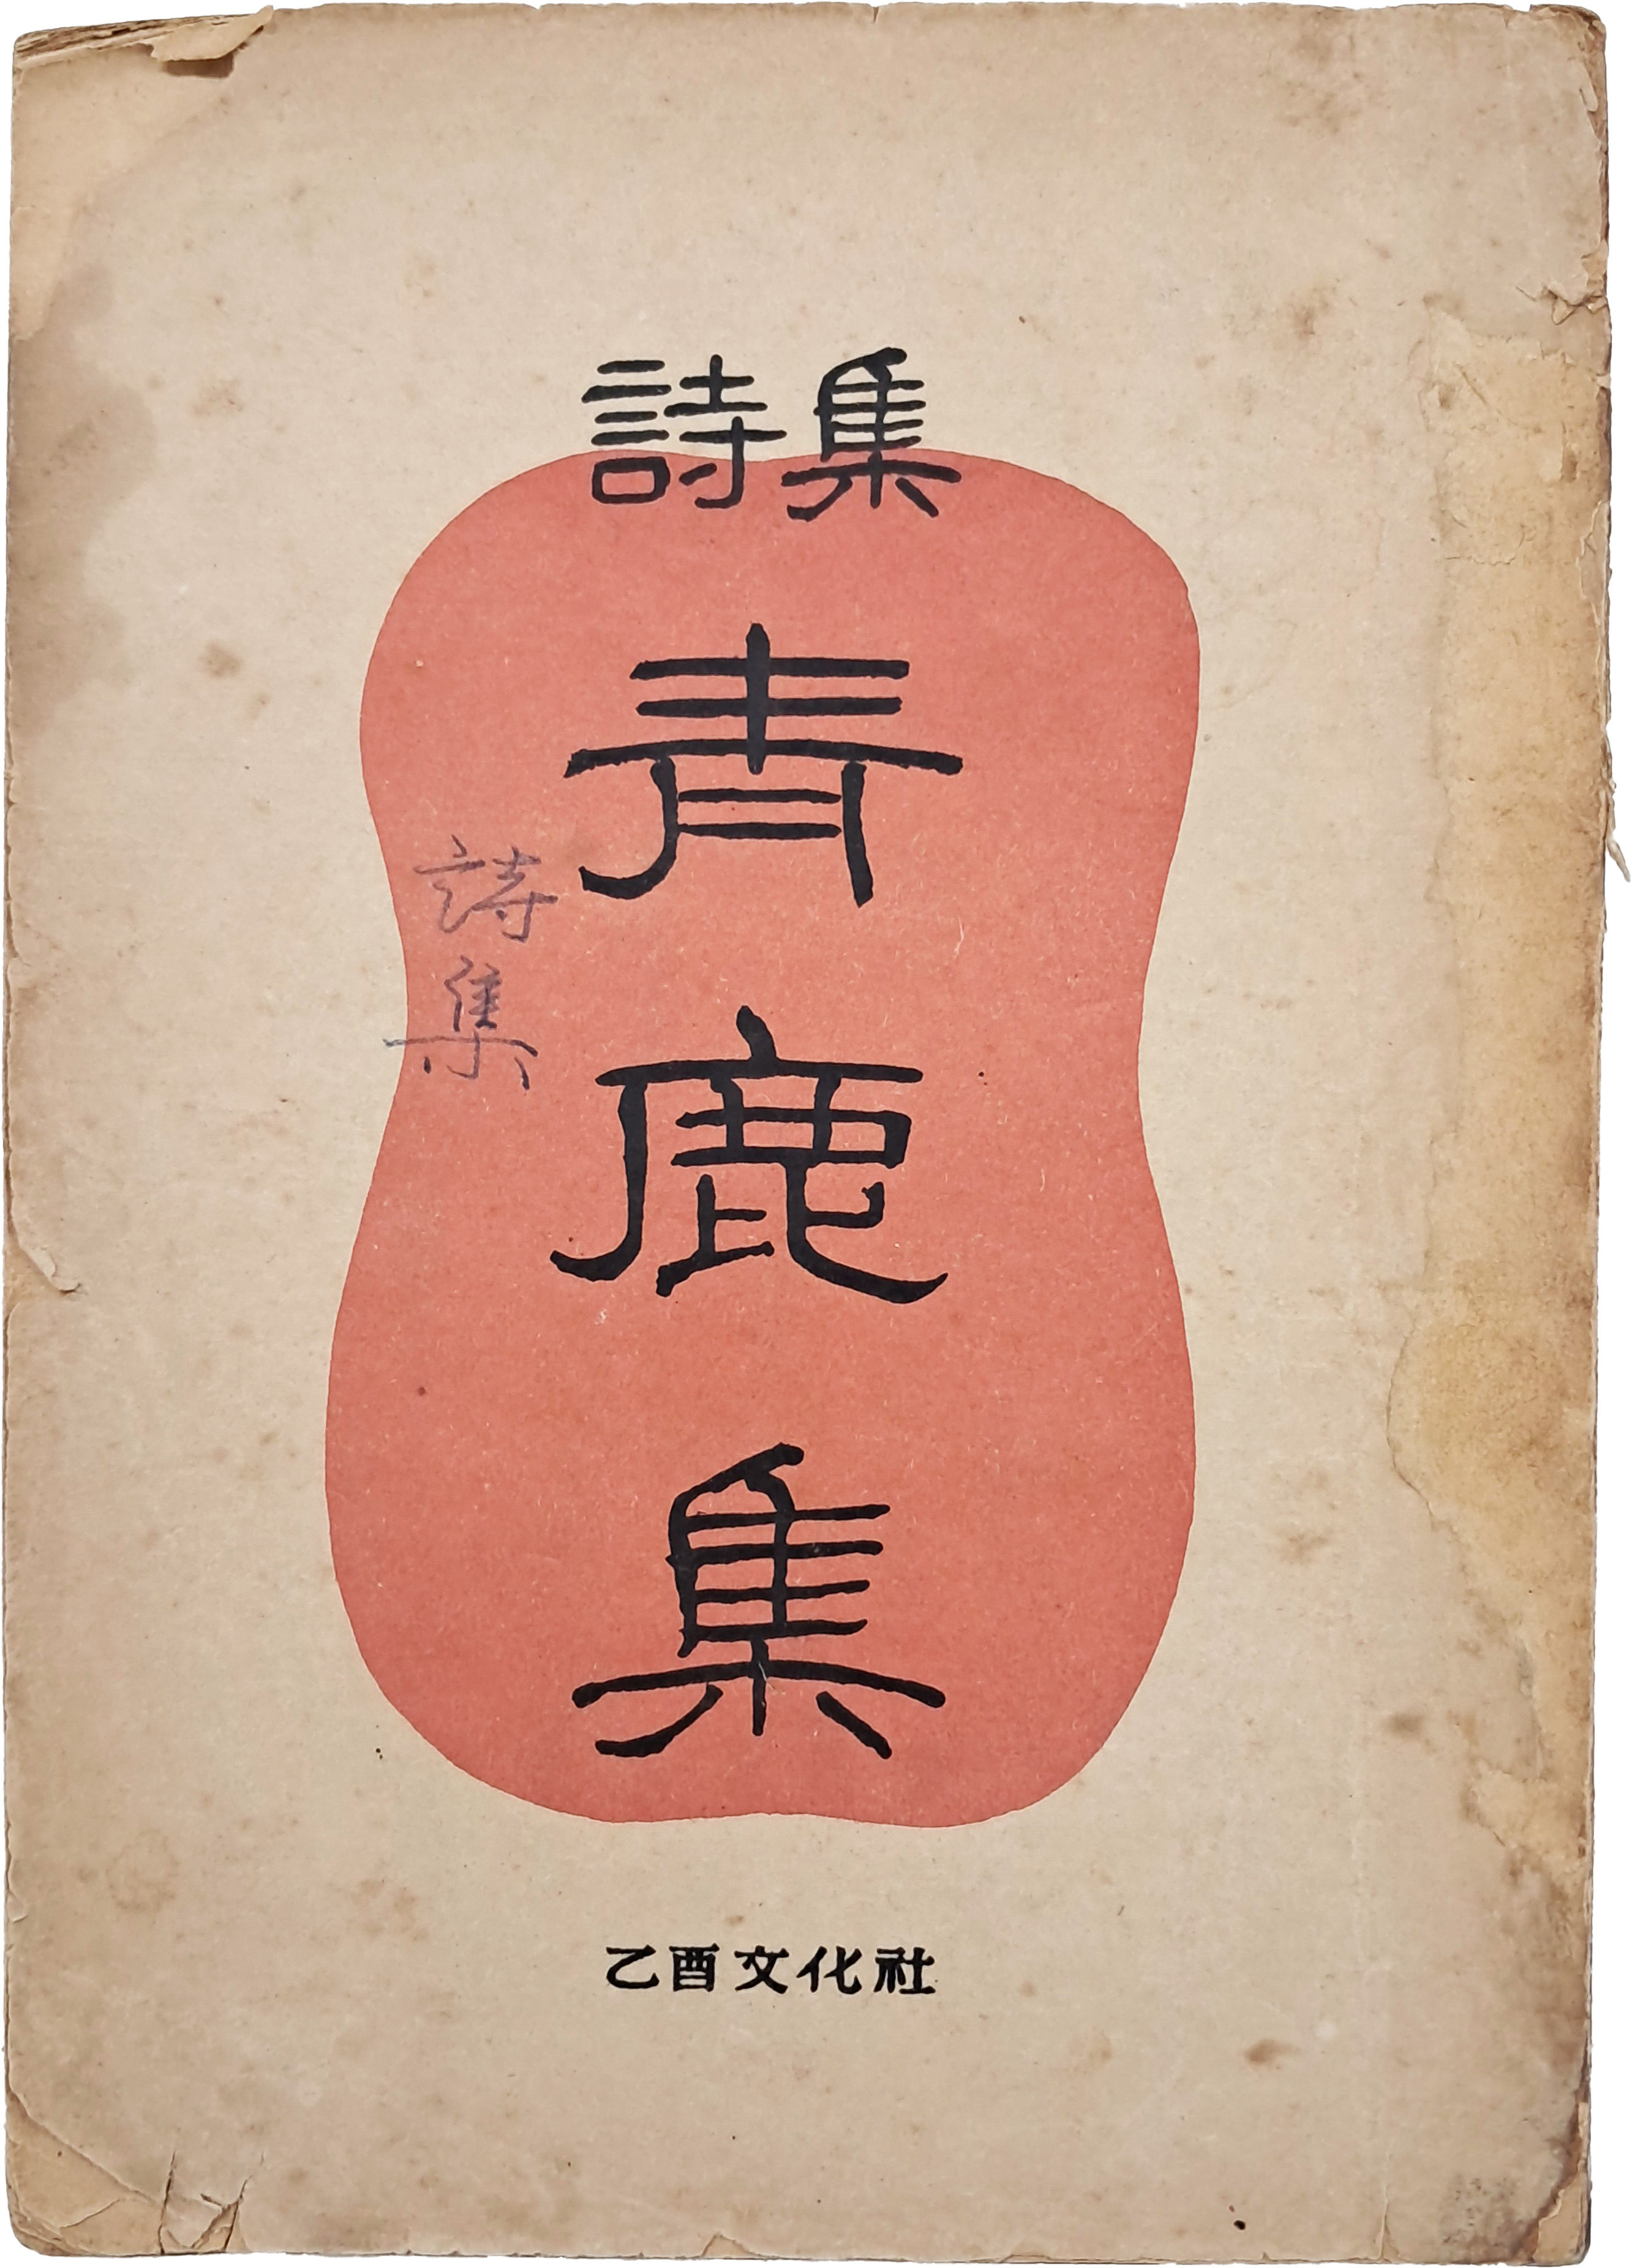 詩集
青
鹿
集
詩
集
乙酉文化社